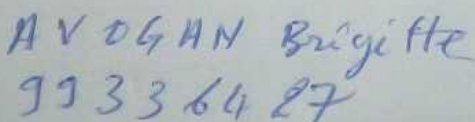 AVOGAN Brigitte
99336427